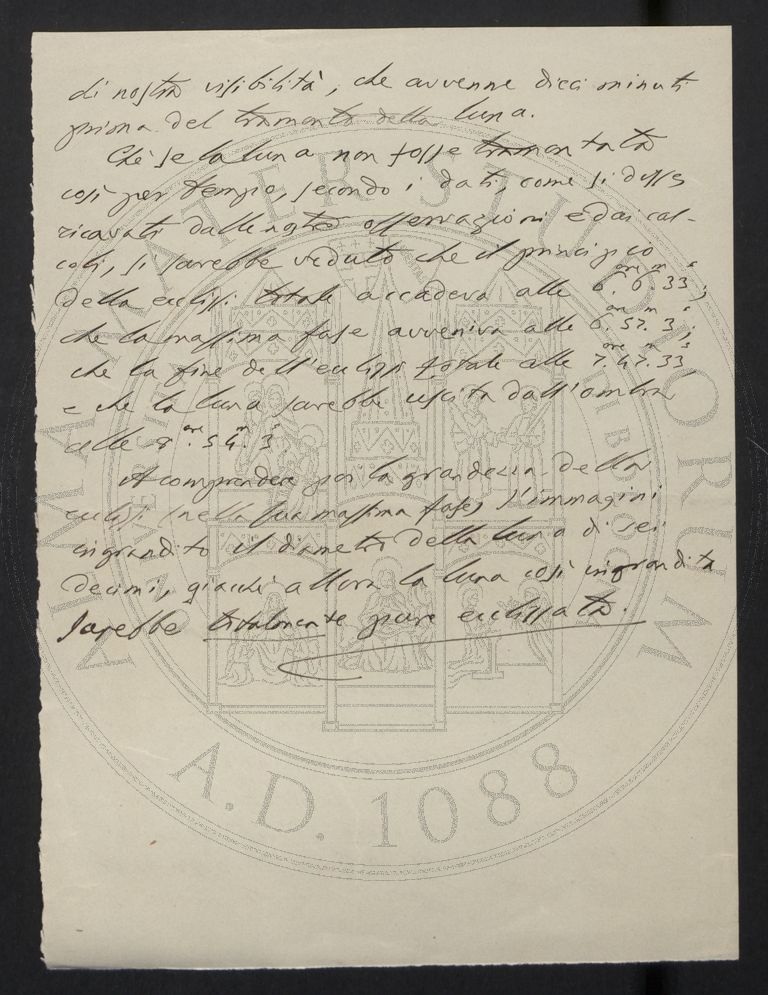 di nostra visibilità, che avvenne dieci minuti
prima del tramonto della luna.
Chè se la luna non fosse tramontata
così per tempo, secondo i dati, come si disse
ricavati dalle nostre osservazioni e dai cal-
coli, si sarebbe veduto che il principio
della ecclissi totale accadeva alle 6.ore 6.m 33s;
che la massima fase avveniva alle 6.ore 57.m 3s;
che la fine dell'ecclissi totale alle 7.ore 47.m 33s
e che la luna sarebbe uscita dall'ombra
alle 8ore. 54.m 3s
A comprendere poi la grandezza della
ecclissi (nella sua massima fase) s'immagini
ingrandito il diametro della luna di sei
decimi, giacchè allora la luna così ingrandita
sarebbe totalmente pure ecclissata.
ALMA MATER STUDIORUM
A.D. 1088